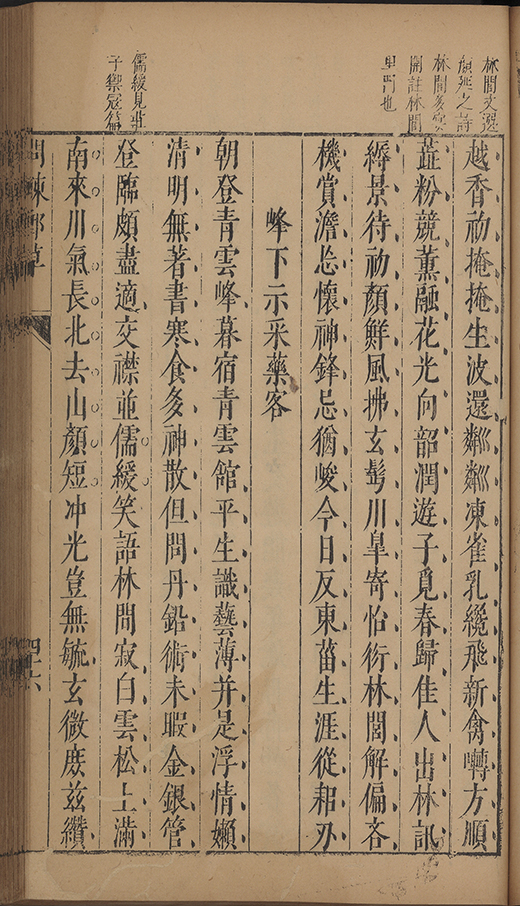 林閭文選
顏延之詩
林閭多
開註林閭
里門也
儒緩見莊
子禦寇篇
越香初掩掩生波還粼粼凍雀乳纔飛新禽囀方順
粉競薰融花光向韶潤遊子覓春歸佳人出林訊
縟景待初顏鮮風拂玄髩川臯寄怡衍林閭解偏吝
機賞澹忘懷神鋒忌猶峻今日反東菑生涯從耜刃
峰下示采藥客
朝登青雲峰暮宿青雲館平生識藝薄并是浮情嬾
清明無著書寒食多神散但問丹鉛術未暇金銀管
登臨頗盡適交襟並儒緩笑語林問寂白雲松上滿
南來川氣長北去山顏短冲光豈無毓玄微庶茲纘
問棘郵草
四十六